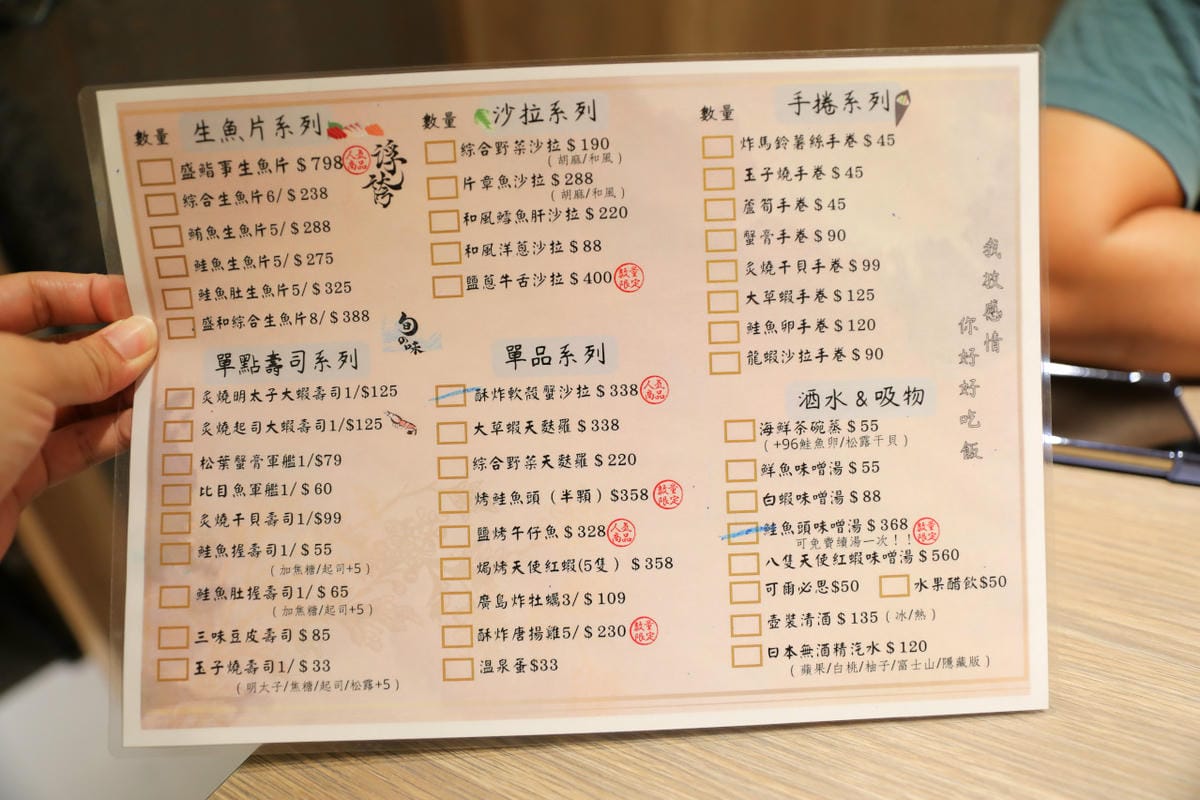 數量 生魚片系列
盛鮨事生魚片 $798 人氣商品
浮誇
綜合生魚片6/ $238
鮪魚生魚片5/ $288
鮭魚生魚片5/ $275
鮭魚肚生魚片5/ $325
盛和綜合生魚片8/ $388
旬の味
單點壽司系列
炙燒明太子大蝦壽司1/$125
炙燒起司大蝦壽司1/$125
松葉蟹膏軍艦1/$79
比目魚軍艦1/ $60
炙燒干貝壽司1/$99
鮭魚握壽司1/ $55
(加焦糖/起司+5)
鮭魚肚握壽司1/ $65
(加焦糖/起司+5)
三味豆皮壽司 $85
玉子燒壽司1/ $33
(明太子/焦糖/起司/松露+5)
數量 沙拉系列
綜合野菜沙拉 $190
(胡麻/和風)
片章魚沙拉 $288
(胡麻/和風)
和風鱈魚肝沙拉 $220
和風洋蔥沙拉 $88
鹽蔥牛舌沙拉 $400 數量限定
單品系列
酥炸軟殼蟹沙拉 $338 人氣商品
大草蝦天麩羅 $338
綜合野菜天麩羅 $220
烤鮭魚頭(半顆) $358 數量限定
鹽烤午仔魚 $328 人氣商品
焗烤天使紅蝦(5隻) $358
廣島炸牡蠣3/ $109
酥炸唐揚雞5/ $230 數量限定
溫泉蛋$33
數量 手捲系列
炸馬鈴薯絲手卷 $45
玉子燒手卷 $45
蘆筍手卷 $45
蟹膏手卷 $90
炙燒干貝手卷 $99
大草蝦手卷 $125
鮭魚卵手卷 $120
龍蝦沙拉手卷 $90
酒水&吸物
海鮮茶碗蒸 $55
(+96鮭魚卵/松露干貝)
鮮魚味噌湯 $55
白蝦味噌湯 $88
鮭魚頭味噌湯 $368 數量限定
可免費續湯一次!!
八隻天使紅蝦味噌湯 $560
可爾必思$50 水果醋飲$50
壺裝清酒 $135 (冰/熱)
日本無酒精汽水 $120
(蘋果/白桃/柚子/富士山/隱藏版)
我被感情
你好好吃飯